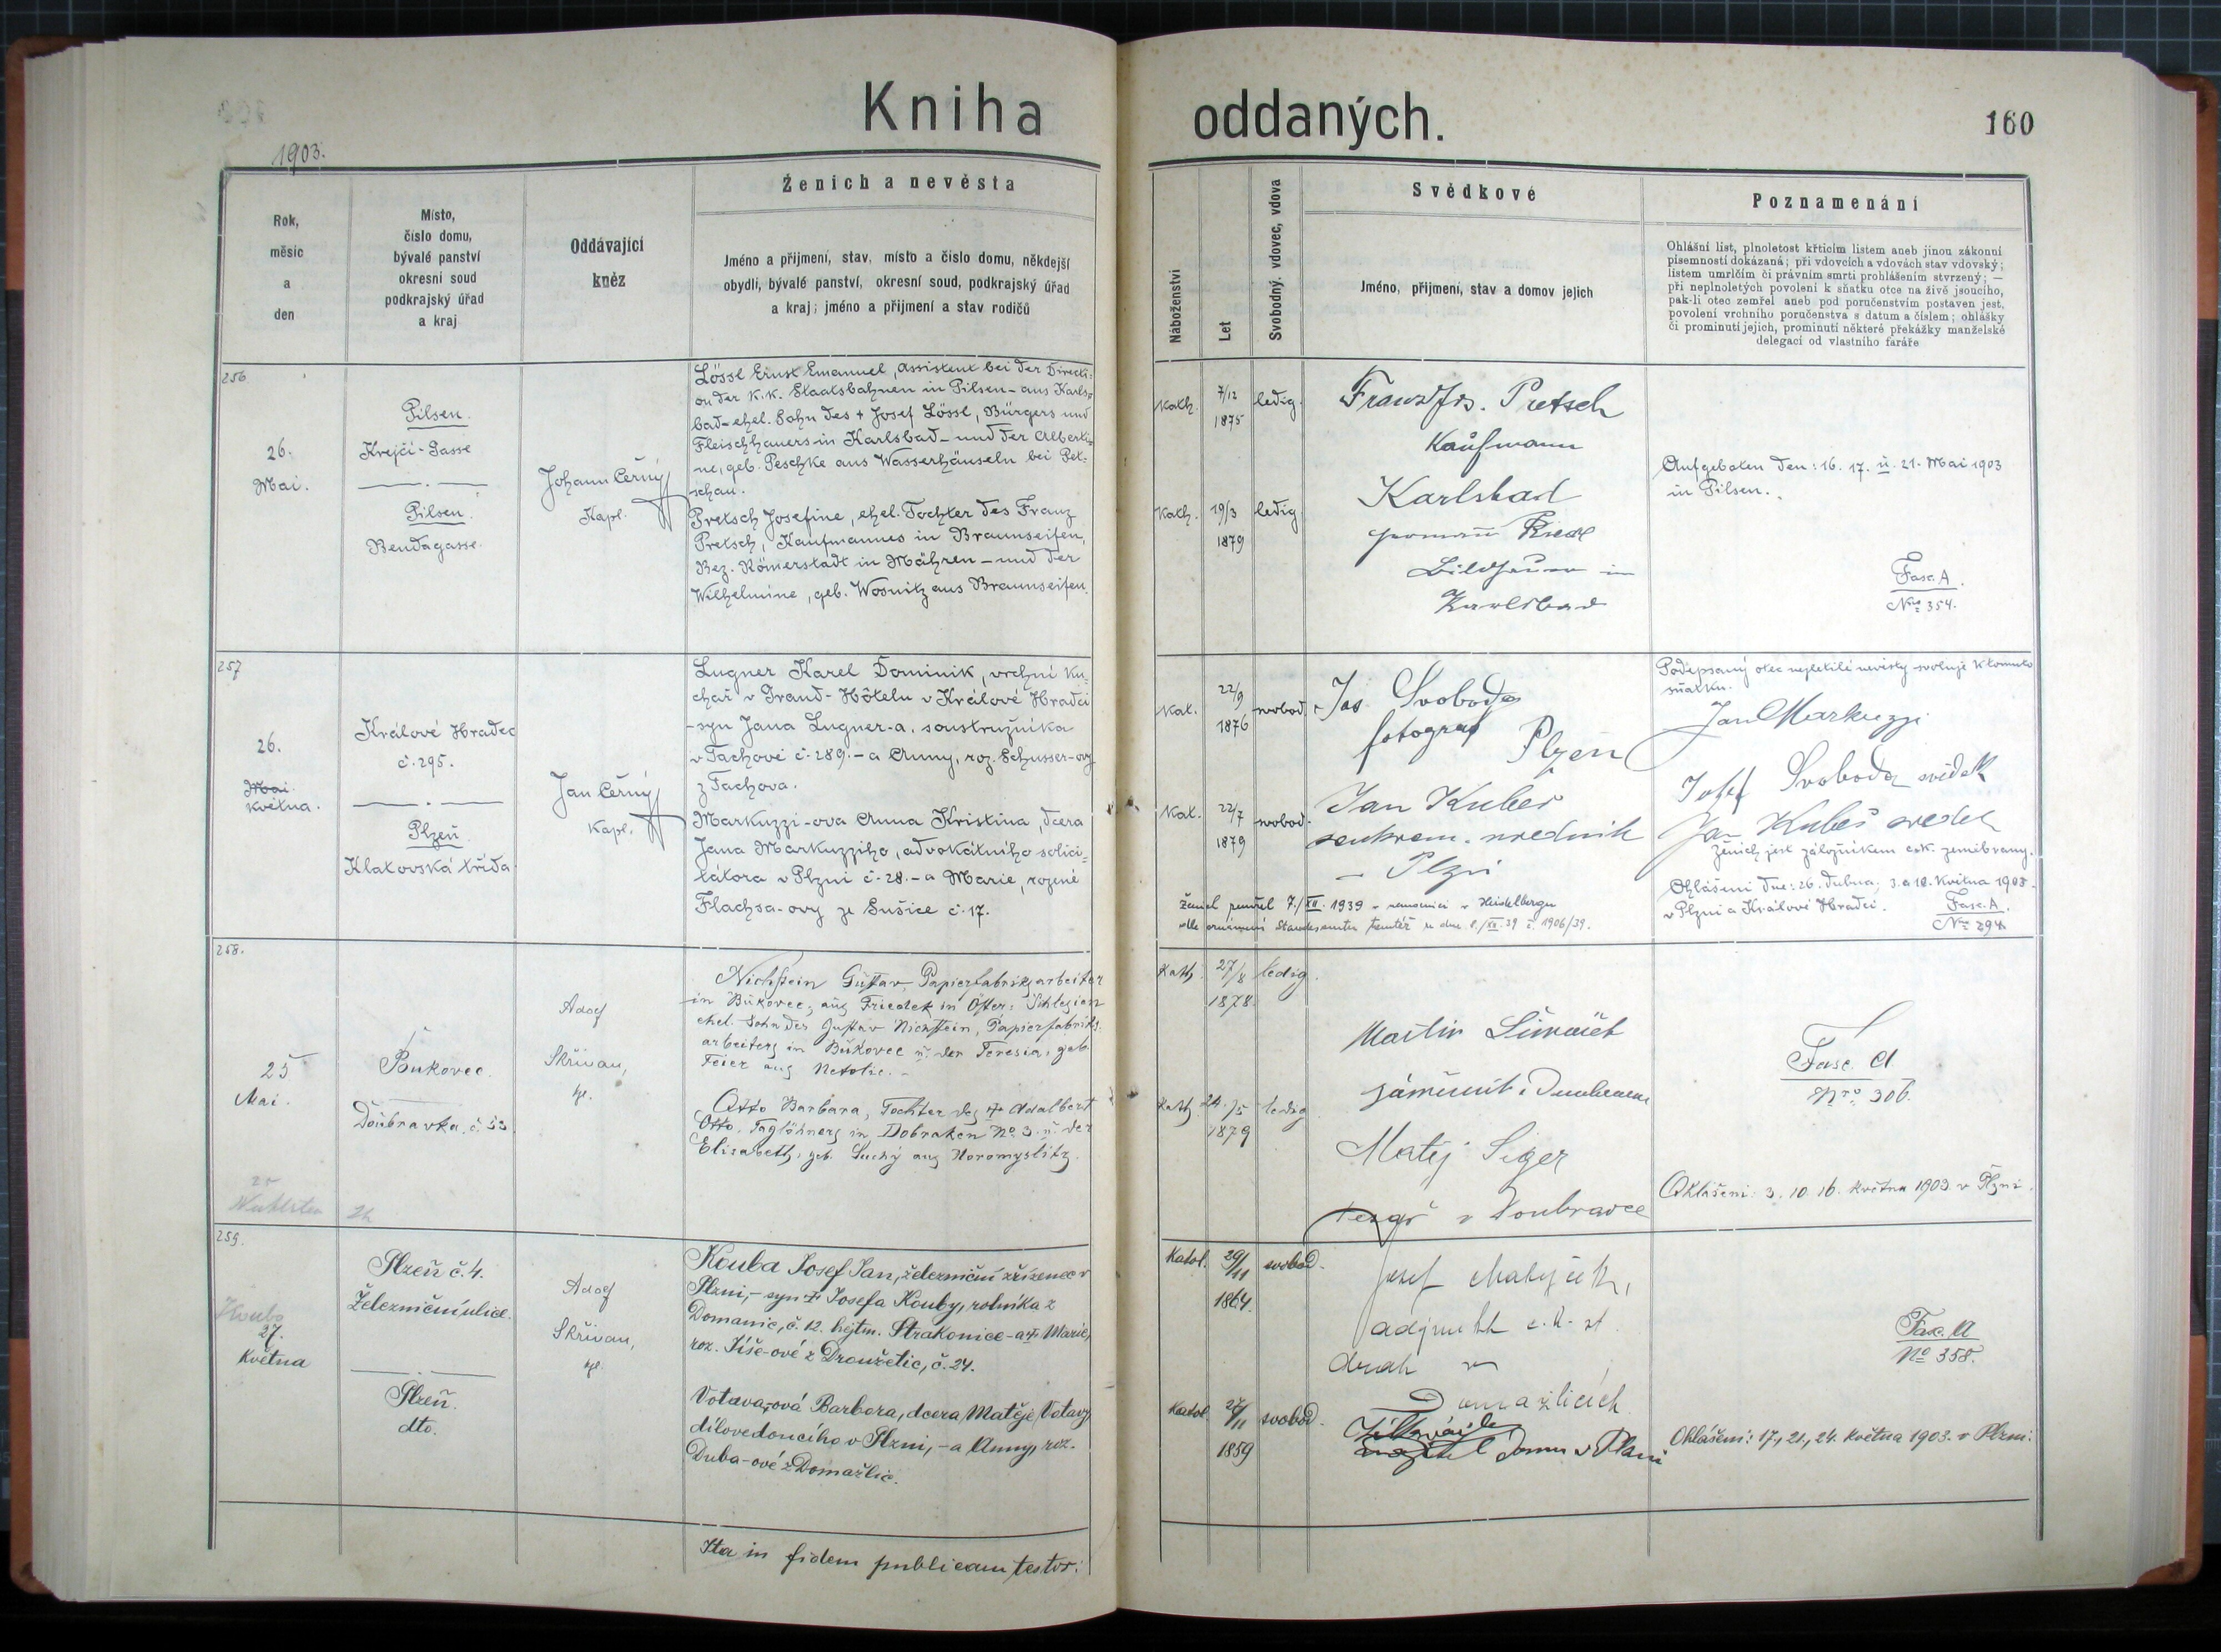 Kniha oddaných.
160
1903.
Rok,
měsíc
a
den
Místo,
číslo domu,
bývalé panství
okresní soud
podkrajský úřad
a kraj
Oddávající
kněz
Ženich a nevěsta
Jméno a příjmení, stav, místo a číslo domu, někdejší
obydlí, bývalé panství, okresní soud, podkrajský úřad
a kraj; jméno a příjmení a stav rodičů
Náboženství
Let
Svobodný, vdovec, vdova
Svědkové
Jméno, příjmení, stav a domov jejich
Poznamenání
Ohlášní list, plnoletost křticím listem aneb jinou zákonní
písemností dokázaná; při vdovcích a vdovách stav vdovský;
listem umrlčím či právním smrti prohlášením stvrzený; —
při neplnoletých povolení k sňatku otce na živě jsoucího,
pak-li otec zemřel aneb pod poručenstvím postaven jest,
povolení vrchního poručenstva s datum a číslem; ohlášky
či prominutí jejich, prominutí některé překážky manželské
delegací od vlastního faráře
256
26.
Mai.
Pilsen.
Krejčí-Gasse
Pilsen.
Bendagasse.
Johann Černý
Kapl.
Lössl Ernst Emanuel, Assistent bei der Directi=
on der K.K. Staatsbahnen in Pilsen - aus Karls=
bad - ehel. Sohn des + Josef Lössl, Bürgers und
Fleischhauers in Karlsbad - und der Alberti=
ne, geb. Peschke aus Wasserhäuseln bei Pet=
schau.
Pretsch Josefine, ehel. Tochter des Franz
Pretsch, Kaufmannes in Braunseifen,
Bez. Römerstadt in Mähren - und der
Wilhelmine, geb. Wosnitz aus Braunseifen.
Kath.
7/12
1875
ledig.
Kath.
19/3
1879
ledig.
Franz Jos. Pretsch
Kaufmann
Karlsbad
Riedl
Bildhauer in
Karlsbad
Aufgeboten den: 16. 17. u. 21. Mai 1903
in Pilsen.
Fasc. A.
Nro 354.
257
26.
Mai
května.
Králové Hradec
č. 295.
Plzeň.
Klatovská třída
Jan Černý
Kapl.
Lugner Karel Dominik, vrchní ku=
chař v Grand-Hôtelu v Králové Hradci
- syn Jana Lugner-a, soustružníka
v Tachově č. 289. - a Anny, roz. Schusser-ovy
z Tachova.
Markuzzi-ova Anna Kristina, dcera
Jana Markuzziho, advokátního solici=
tátora v Plzni č. 28. - a Marie, rozené
Flachsa-ovy ze Sušice č. 17.
Kat.
22/9
1876
svobod.
Kat.
22/7
1879
svobod.
Jos. Svoboda
fotograf Plzeň
Jan Kubeš
soukrom. úředník
Plzni
Podepsaný otec nezletilé nevěsty svoluje k tomuto
sňatku.
Jan Markuzzi
Josef Svoboda svědek
Jan Kubeš svedek
Ženich jest záložníkem c. k. zeměbrany.
Ohlášeni dne: 26. dubna, 3. a 10. května 1903.
v Plzni a Králové Hradci.
Fasc. A.
Nro 294.
zemřel 7./XII. 1939 v nemocnici v Heidelbergu
dle oznámení Standesamtu tamtéž ze dne 8./XII. 39 č. 1906/39.
258.
25
Mai.
Bukovec.
Doubravka, č. 53
Adolf
Skřivan,
kpl.
Nichstein Gustav, Papierfabriksarbeiter
in Bukovec, aus Friedek in Öster. Schlesien
ehel. Sohn des Gustav Nichstein, Papierfabriks
arbeiters in Bukovec u. der Teresia, geb.
Feier aus Netolic.
Otto Barbara, Tochter des + Adalbert
Otto, Taglöhners in Dobraken No. 3. u. der
Elisabeth, geb. Suchý aus Horomyslitz.
Kath.
27/8
1878.
ledig.
Kath.
24./5
1879
ledig
Martin
Matěj Siger
v Doubravce
Fasc. A
Nro. 306.
Ohlášeni: 3. 10. 16. května 1903. v Plzni.
259.
Kouba
27.
Května
Plzeň č. 4.
Železniční ulice.
Plzeň.
dto.
Adolf
Skřivan,
kpl.
Kouba Josef Jan, železniční zřízenec v
Plzni, - syn + Josefa Kouby, rolníka z
Domanic, č. 12. hejtm. Strakonice - a + Marie,
roz. Jíše-ové z Droužetic, č. 24.
Votava-ová Barbora, dcera Matěje Votavy,
dílovedoucího v Plzni, - a Anny, roz.
Duba-ové z Domažlic.
Katol.
29/11
1864.
svobod.
Katol.
27/11
1859
svobod.
Josef Matějček,
adjunkt c. k. st.
drah v
Domažlicích
majitel domu v Plzni
Fasc. A
No 358.
Ohlášeni: 17., 21., 24. května 1903. v Plzni.
Ita in fidem publicam testor: